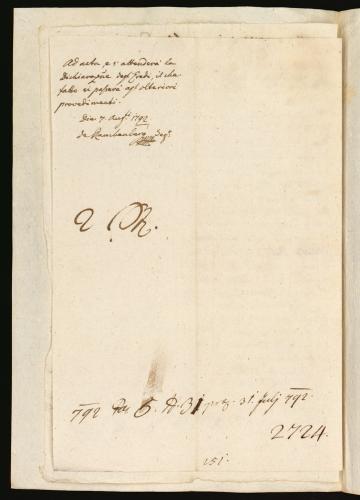 Ad acta, e s' attenderà la
Dichiarazne degl' Eredi, il che
fatto si passerà agl' ulteriori
provedimenti.
Die 7. Augt. 1792
de Segr.
2
792 5. 31 31. July 792.
2724.
151.